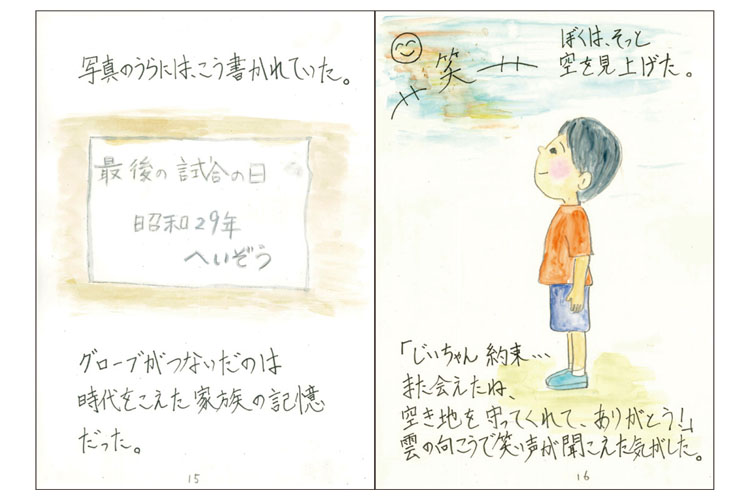 写真のうらには、こう書かれていた。
最後の試合の日
昭和29年
へいぞう
グローブがつないだのは
時代をこえた家族の記憶
だった。
15
笑
ぼくは、そっと
空を見上げた。
「じいちゃん 約束…
また会えたね、
空き地を守ってくれて、ありがとう!」
雲の向こうで笑い声が聞こえた気がした。
16